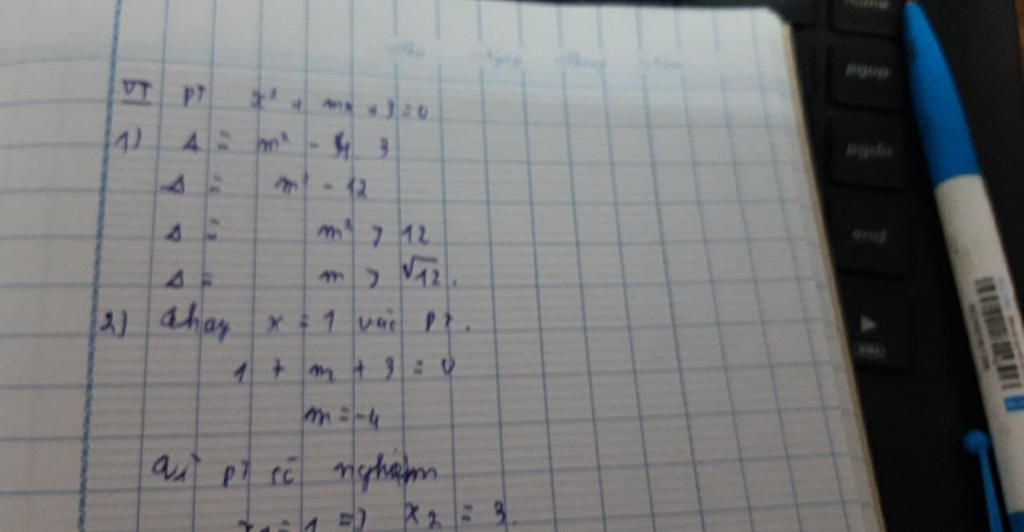 VI pt x² + mx + 3 = 0
1) Δ = m² - 4.3
Δ = m² - 12
Δ = m² > 12
Δ = m > √12.
2) Thay x = 1 vào pt.
1 + m + 3 = 0
m = -4
pt có nghiệm
x₁ = 1 => x₂ = 3.
pgup
pgdn
end